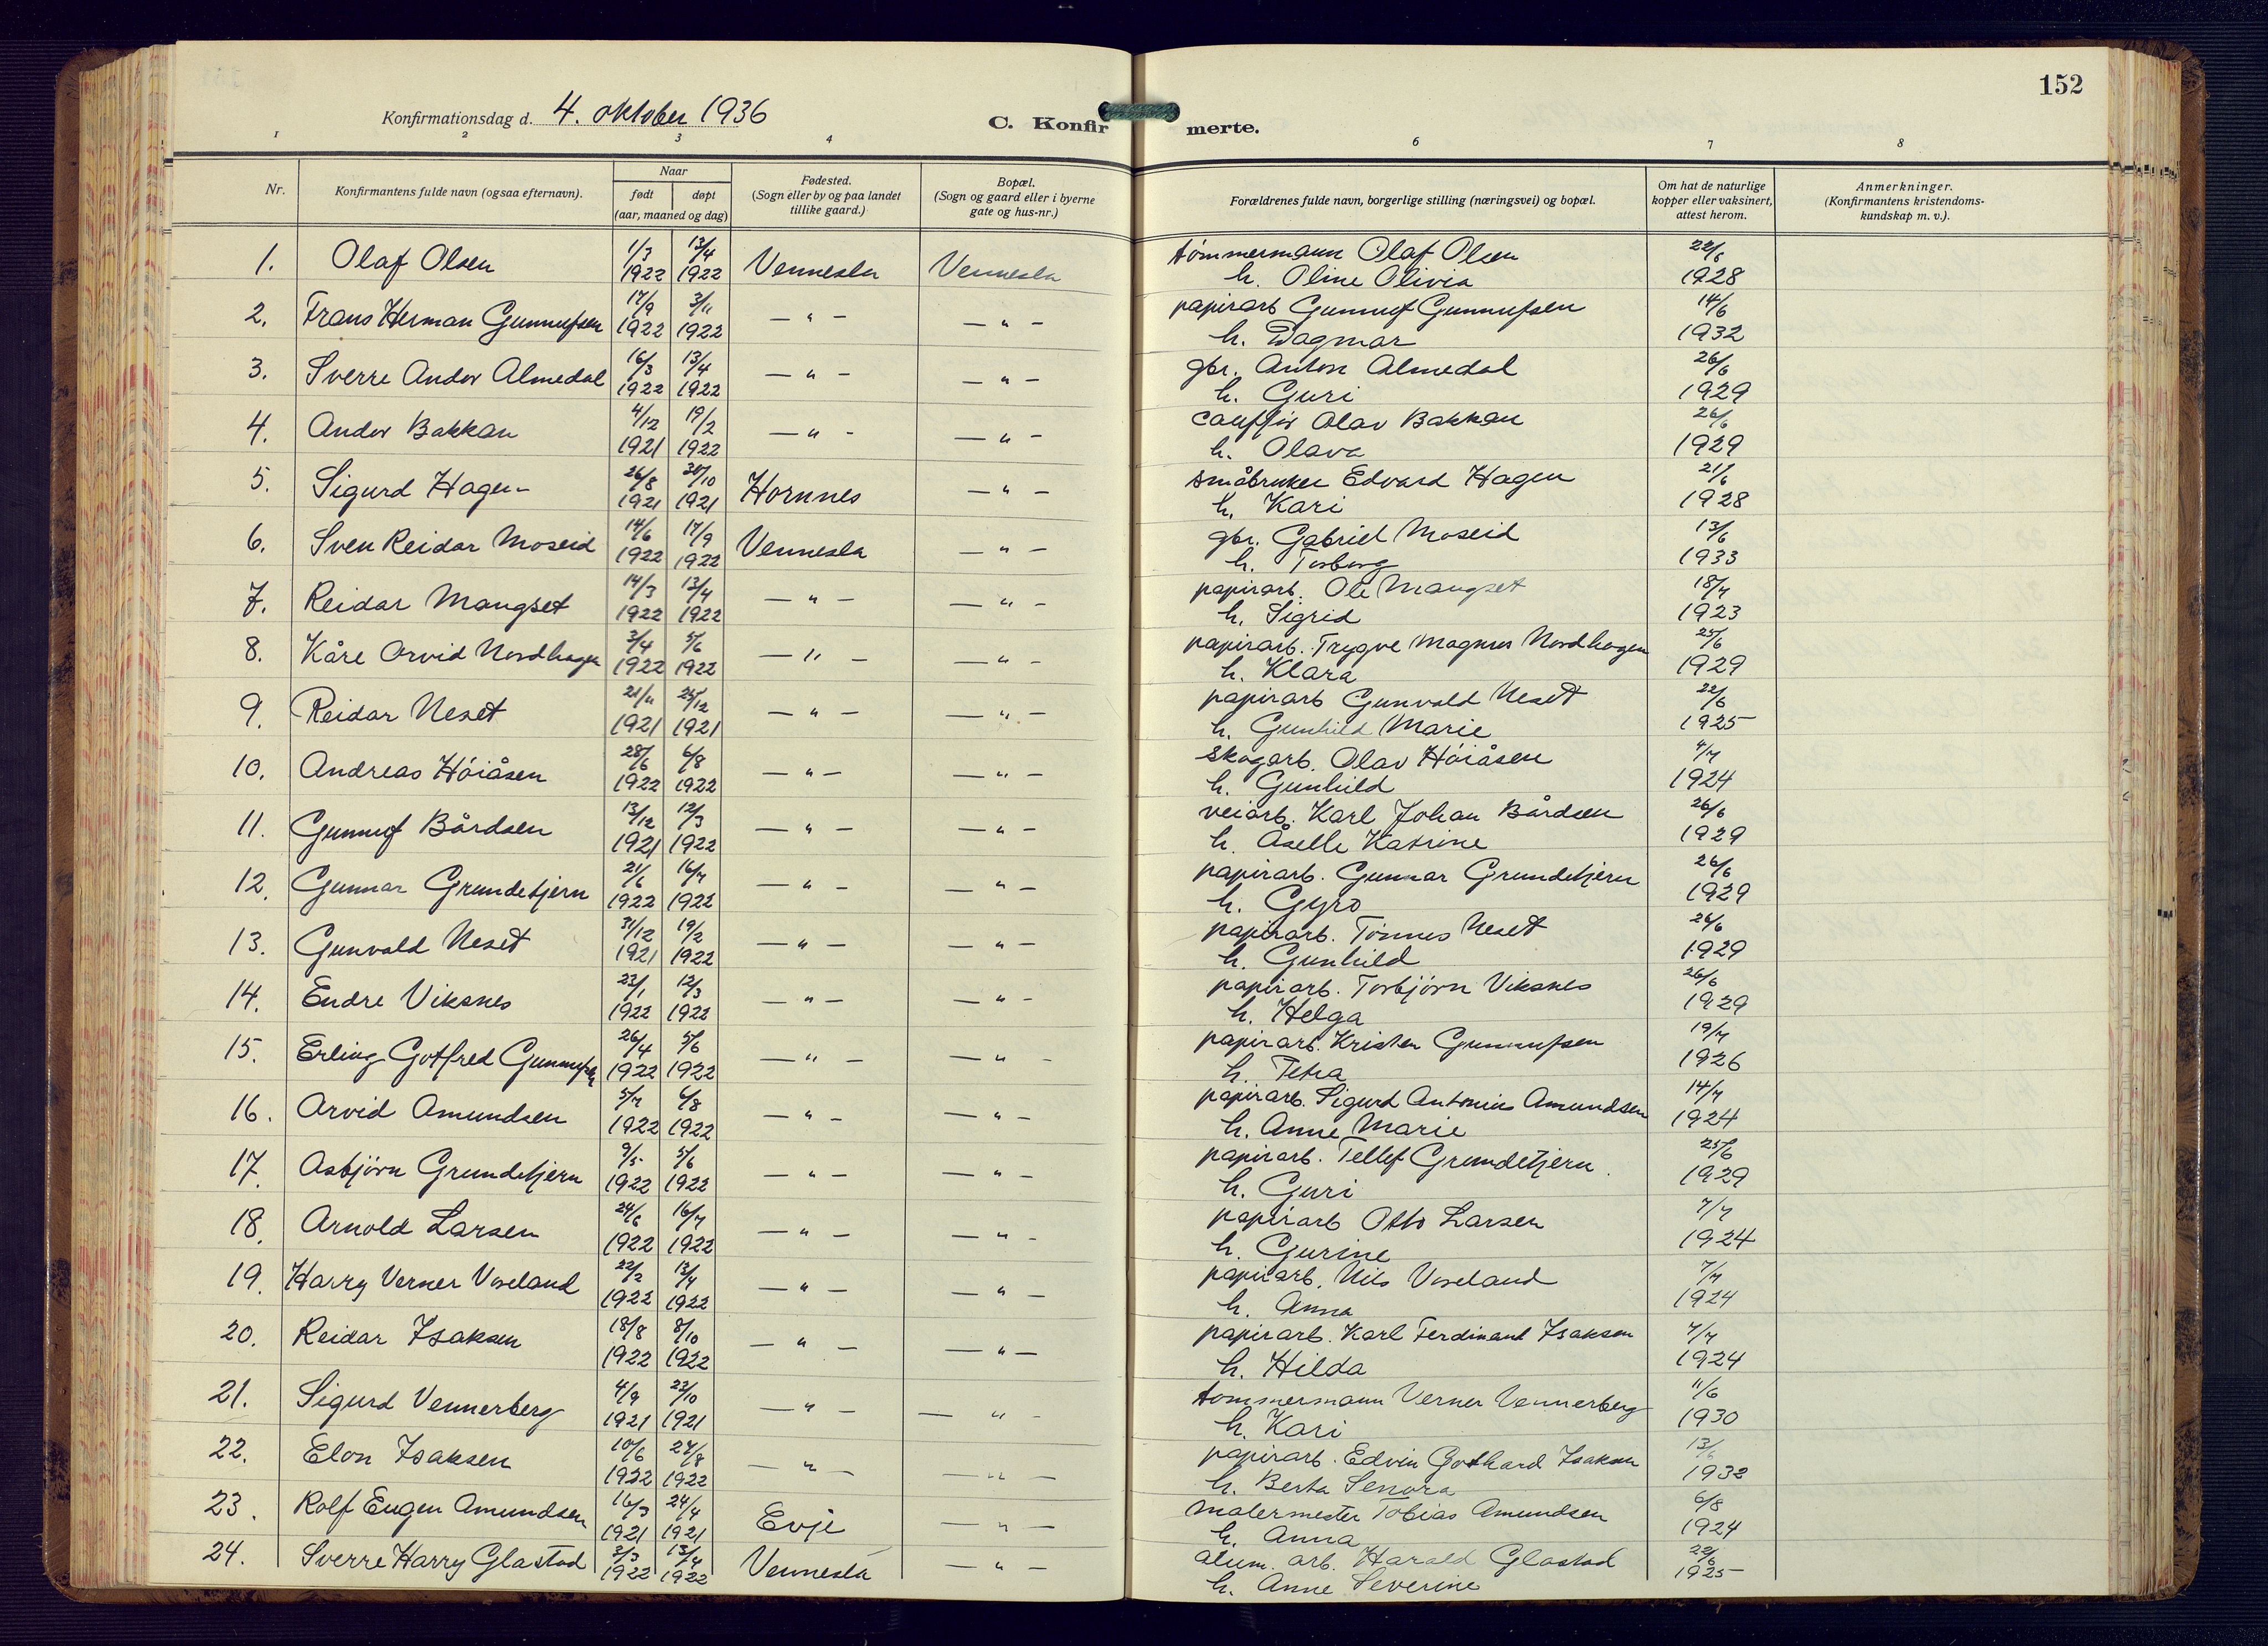 152
Konfirmationsdag d. 4. oktober 1936
C. Konfirmerte.
1 2 3 4 6 7 8
Nr.
Konfirmantens fulde navn (ogsaa efternavn).
Naar
født døpt
(aar, maaned og dag)
Fødested.
(Sogn eller by og paa landet
tillike gaard.)
Bopæl.
(Sogn og gaard eller i byerne
gate og hus-nr.)
Forældrenes fulde navn, borgerlige stilling (næringsvei) og bopæl.
Om hat de naturlige
kopper eller vaksinert,
attest herom.
Anmerkninger.
(Konfirmantens kristendoms-
kundskap m. v.).
1. Olaf Olsen 1/3 1922 13/4 1922 Vennesla Vennesla tömmermann Olaf Olsen 22/6
h. Oline Olivia 1928
2. Frans Herman Gunnufsen 17/9 1922 3/11 1922 — " — — " — papirarb Gunnuf Gunnufsen 14/6
h. Dagmar 1932
3. Sverre Andor Almedal 16/3 1922 13/4 1922 — " — — " — gbr. Anton Almedal 26/6
h. Guri 1929
4. Andor Bakkan 4/12 1921 19/2 1922 — " - — " — Olav Bakkan 26/6
h. Olava 1929
5. Sigurd Hagen 26/8 1921 30/10 1921 Hornnes — " — småbruker Edvard Hagen 21/6
h. Kari 1928
6. Sven Reidar Moseid 14/6 1922 17/9 1922 Vennesla — " — gbr. Gabriel Moseid 13/6
h. Torborg 1933
7. Reidar Mangset 14/3 1922 13/4 1922 — " — — " — papirarb. Ole Mangset 18/7
h. Sigrid 1923
8. Kåre Arvid Nordhagen 3/4 1922 5/6 1922 — " — — " — papirarb. Trygve Magnus Nordhagen 25/6
h. Klara 1929
9. Reidar Neset 21/11 1921 25/12 1921 — " — — " — papirarb Gunvald Neset 22/6
h. Gunhild Marie 1925
10. Andreas Höiåsen 28/6 1922 6/8 1922 — " — — " — skogarb. Olav Höiåsen 4/7
h. Gunhild 1924
11. Gunnuf Bårdsen 13/12 1921 12/3 1922 — " — — " — veiarb. Karl Johan Bårdsen 26/6
h. Åselle Katrine 1929
12. Gunnar Grundetjern 21/6 1922 16/7 1922 — " — — " — papirarb. Gunnar Grundetjern 26/6
h. Gyro 1929
13. Gunvald Neset 31/12 1921 19/2 1922 — " — — " — papirarb. Tönnes Neset 26/6
h. Gunhild 1929
14. Endre Viksnes 23/1 1922 12/3 1922 — " — — " — papirarb. Torbjörn Viksnes 26/6
h. Helga 1929
15. Erling Gotfred Gunnufsen 26/4 1922 5/6 1922 — " — — " - papirarb. Kristen Gunnufsen 19/7
h. Tetra 1926
16. Arvid Amundsen 5/7 1922 6/8 1922 — " - — " - papirarb. Sigurd Antonius Amundsen 14/7
h. Anne Marie 1924
17. Asbjörn Grundetjern 9/5 1922 5/6 1922 — " — — " - papirarb. Tellef Grundetjern 25/6
h. Guri 1929
18. Arnold Larsen 24/6 1922 16/7 1922 — " — — " - papirarb Otto Larsen 7/7
h. Gurine 1924
19. Harry Verner Voseland 22/2 1922 13/4 1922 — " — — " — papirarb. Nils Voseland 7/7
h. Anna 1924
20. Reidar Isaksen 18/8 1922 8/10 1922 — " — — " — papirarb. Karl Ferdinant Isaksen 7/7
h. Hilda 1924
21. Sigurd Vennerberg 4/9 1921 22/10 1921 — " — — " - tömmermann Verner Vennerberg 11/6
h. Kari 1930
22. Elon Isaksen 10/6 1922 27/8 1922 — " — — " — papirarb. Edvin Gothard Isaksen 13/6
h. Berta Senora 1932
23. Rolf Eugen Amundsen 16/3 1921 24/4 1921 Evje — " — malermester Tobias Amundsen 6/8
h. Anna 1924
24. Sverre Harry Glastad 3/3 1922 13/4 1922 Vennesla — " — alum. arb. Harald Glastad 22/6
h. Anne Severine 1925